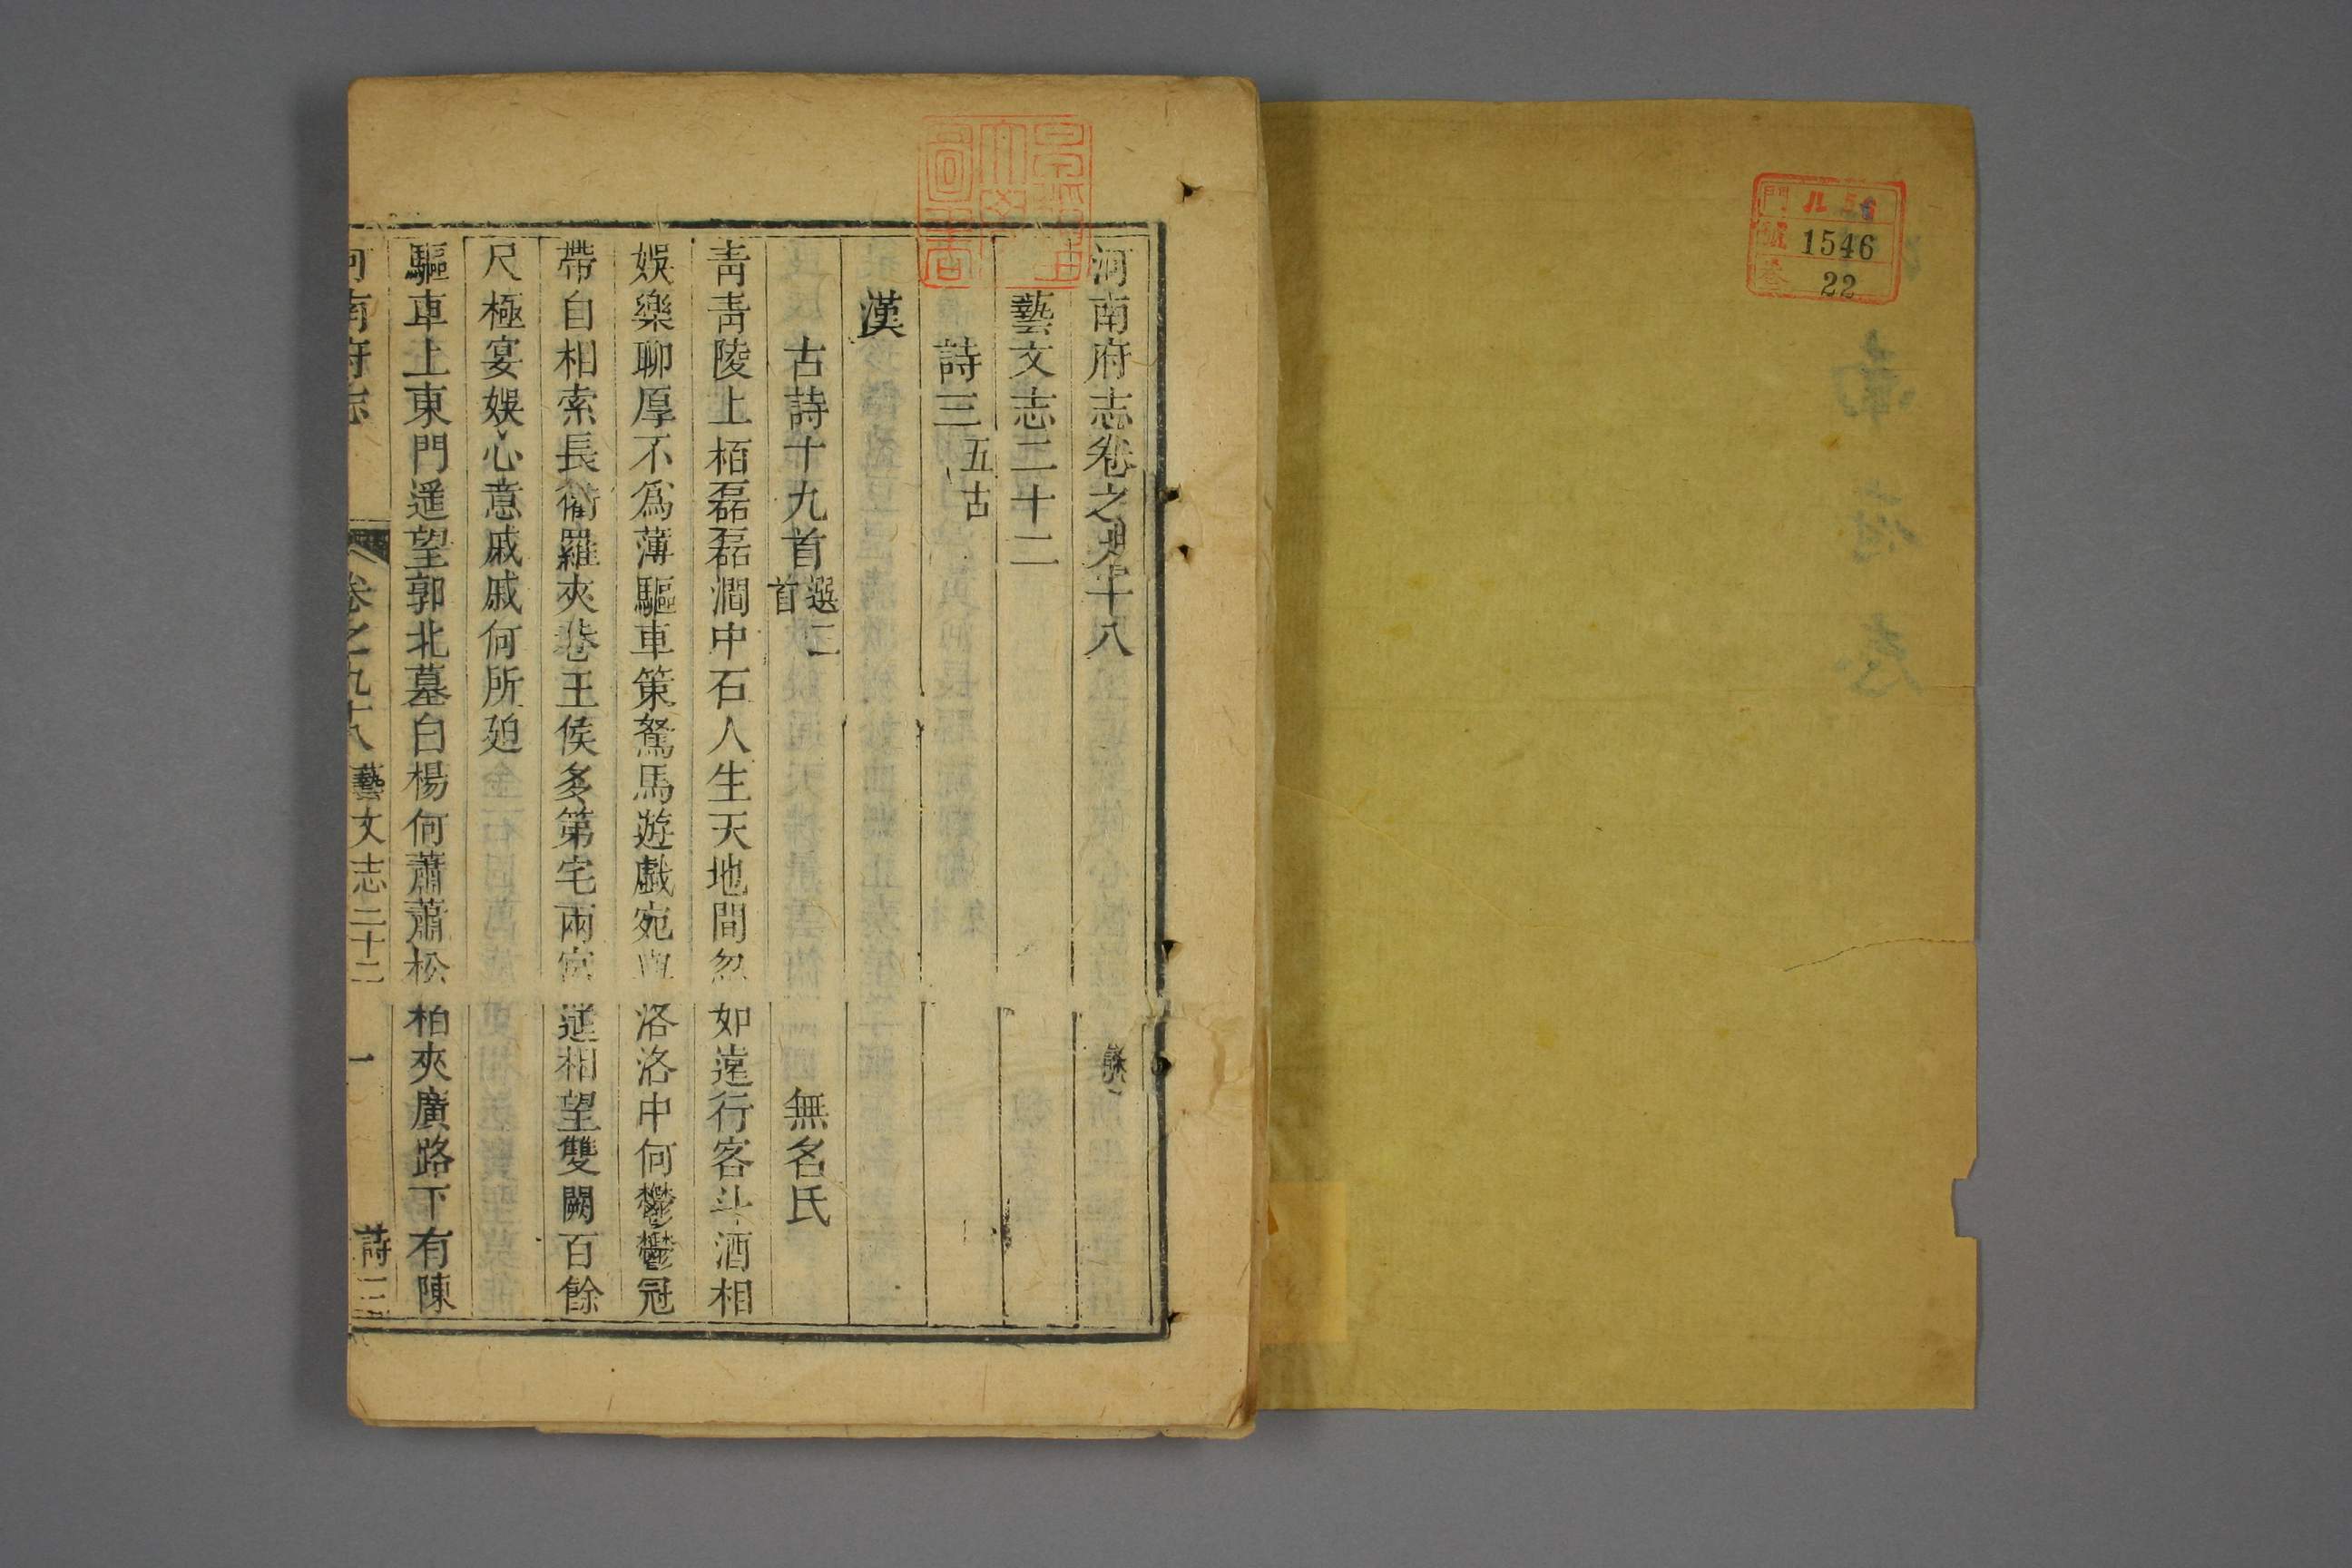 門 ル 5
號 1546
卷 22
河南府志卷之九十八
藝文志二十二
詩三 五古
漢
古詩十九首 選二首 無名氏
青青陵上栢磊磊澗中石人生天地間忽如遠行客斗酒相
娛樂聊厚不爲薄驅車策駑馬遊戲宛與洛洛中何鬱鬱冠
帶自相索長衢羅夾巷王侯多第宅兩宮遥相望雙闕百餘
尺極宴娛心意戚戚何所廹
驅車上東門遥望郭北墓白楊何蕭蕭松柏夾廣路下有陳
河南府志 卷之九十八 藝文志二十二 一 詩三